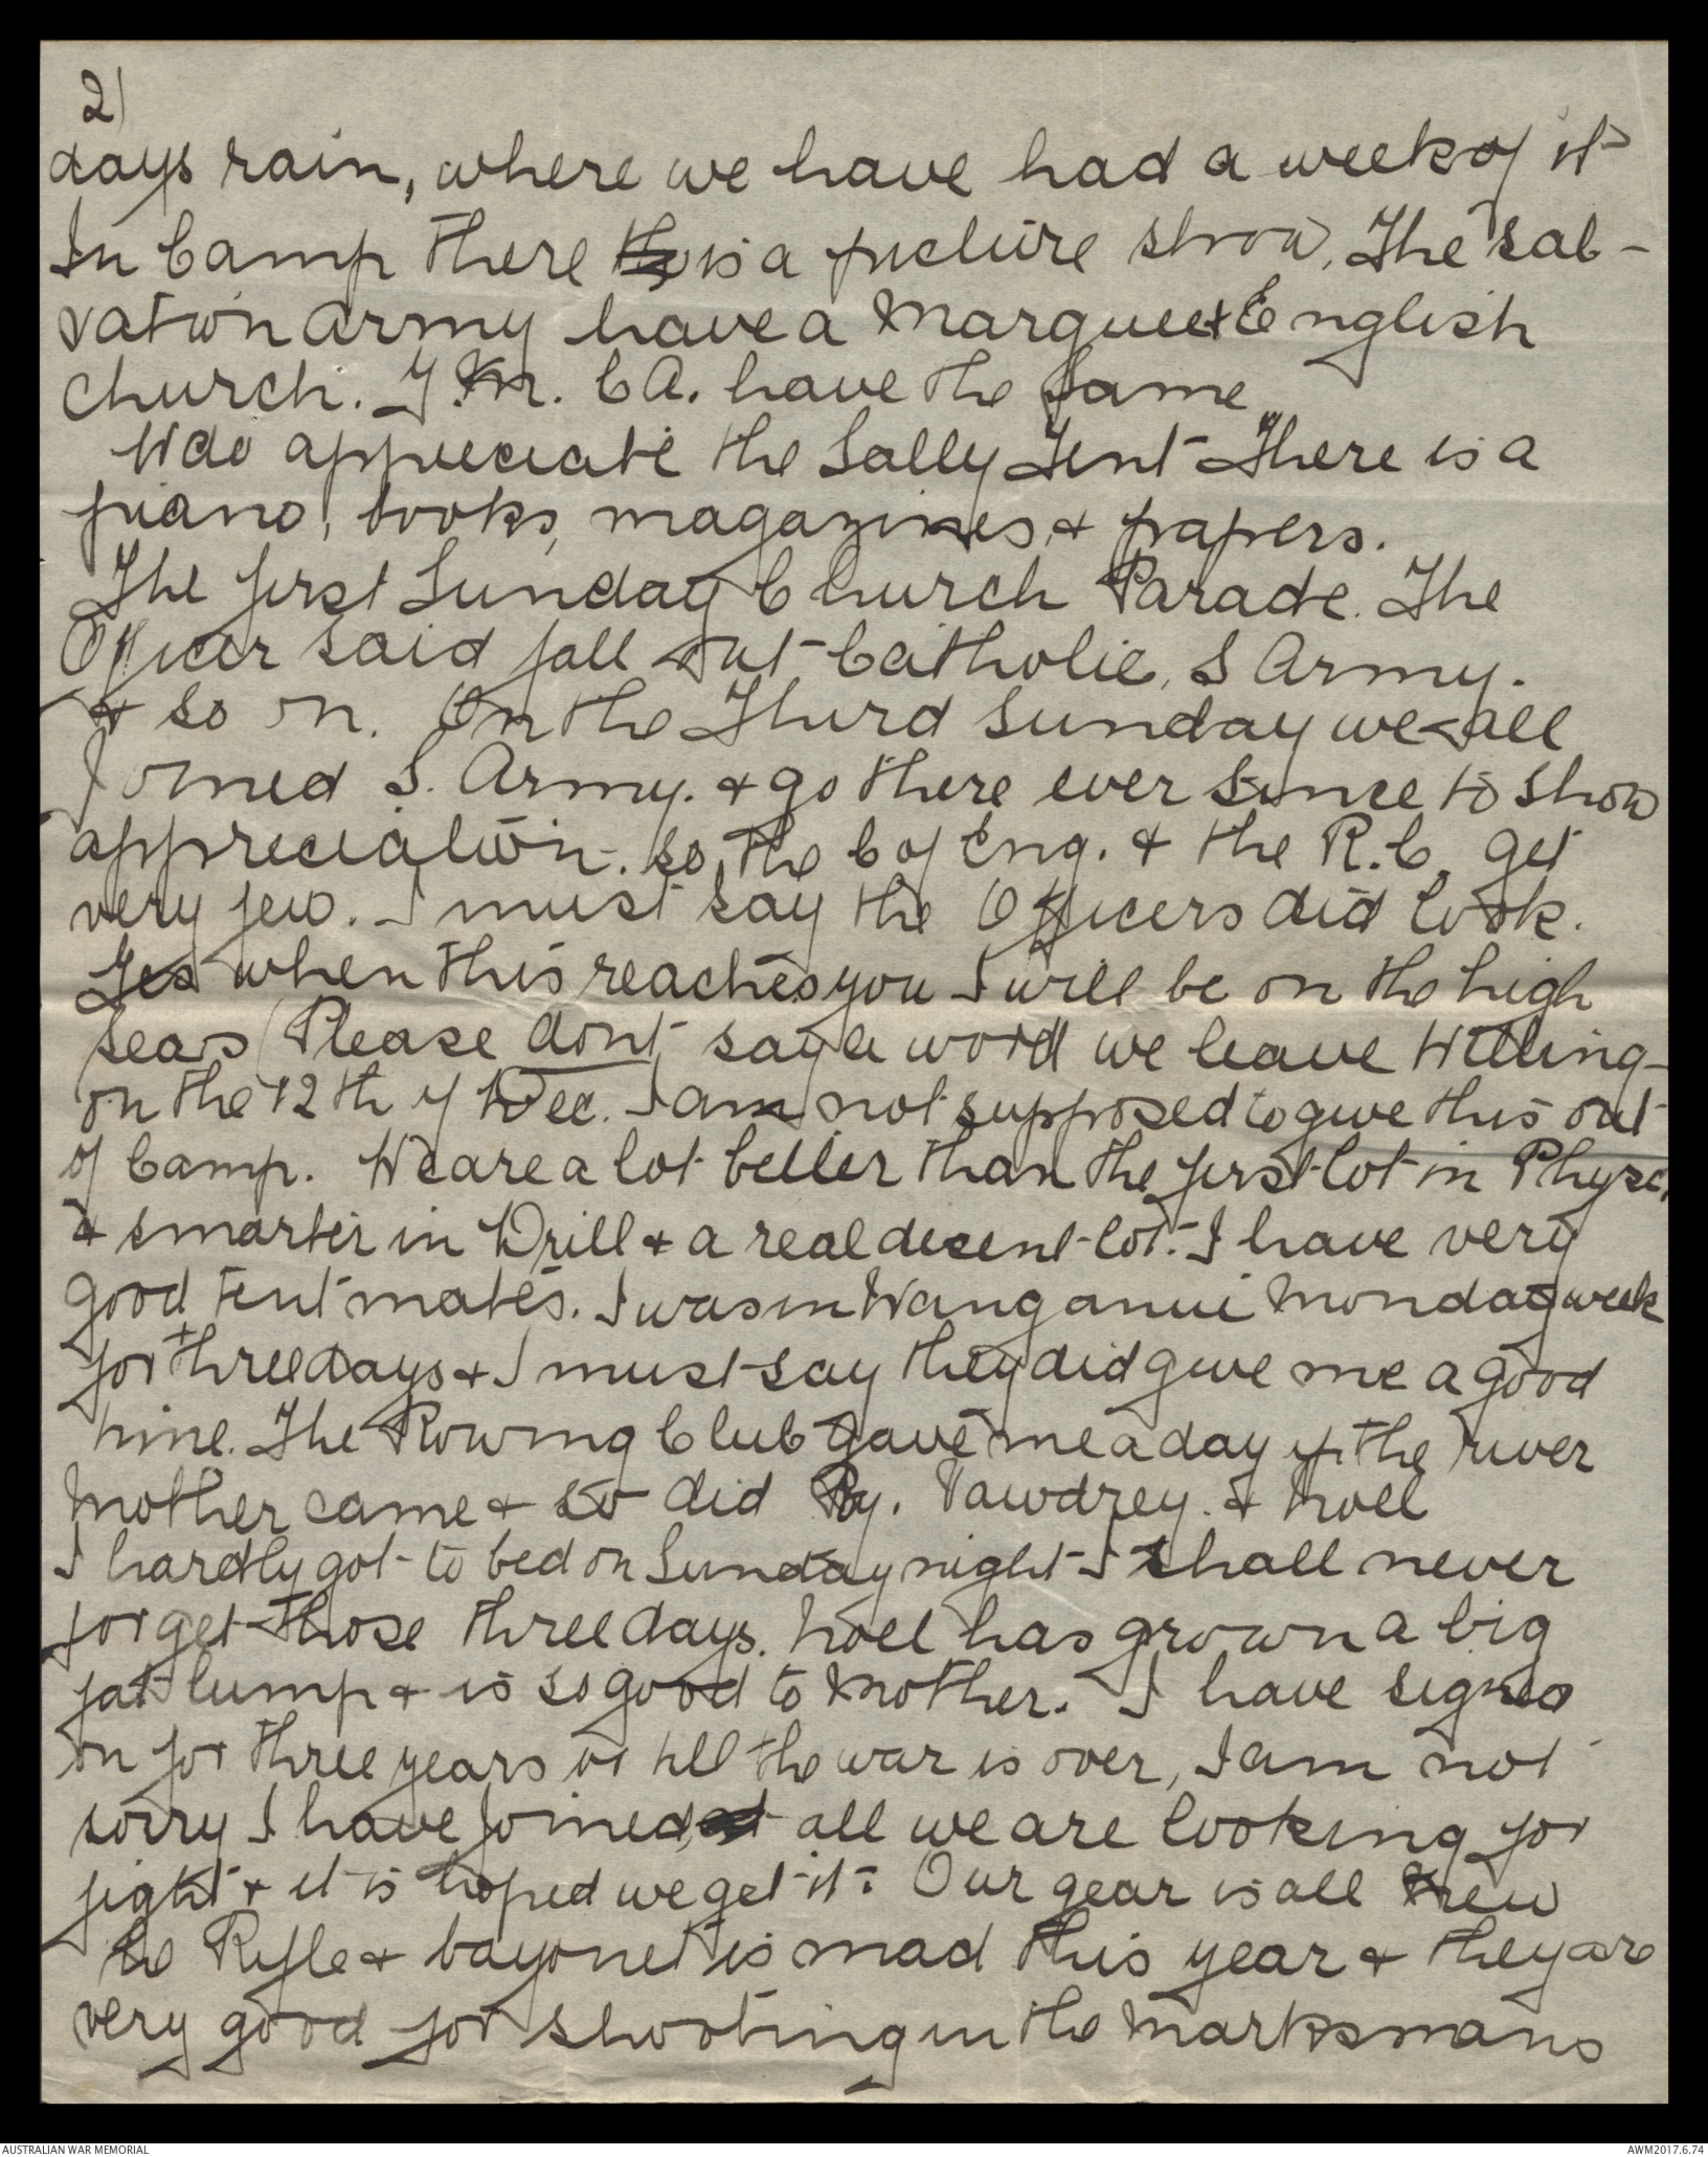 2)
days rain, where we have had a week of it
In Camp there is a picture show. The Sal-
vation Army have a Marquee + English
Church. Y.M. CA. have the same
We do appreciate the Sally Tent There is a
piano, books, magazines, + papers.
The first Sunday Church Parade. The
Officer said fall out Catholic, S Army.
+ so on. On the Third Sunday we all
Joined S. Army. + go there ever since to show
appreciation. so, the C of Eng. + the R.C. get
very few. I must say the Officers did look.
Yes when this reaches you I will be on the high
seas (Please dont say a word we leave Welling-
on the 12th of Dec. I am not supposed to give this out
of Camp. We are a lot better than the first lot in Physc.
+ smarter in Drill + a real decent lot. I have very
good tent mates. I was in Wanganui Monday week
for three days + I must say they did give me a good
time. The Rowing Club gave me a day up the river
Mother came + so did Vawdrey. + Noel
I hardly got to bed on Sunday night I shall never
forget those three days. Noel has grown a big
fat lump + is so good to Mother. I have signed
on for three years or till the war is over, I am not
sorry I have Joined, all we are looking for
fight + it is hoped we get it. Our gear is all new
Rifle + bayonet is mad this year + they are
very good for shooting in the marksmans
AUSTRALIAN WAR MEMORIAL
AWM2017.6.74